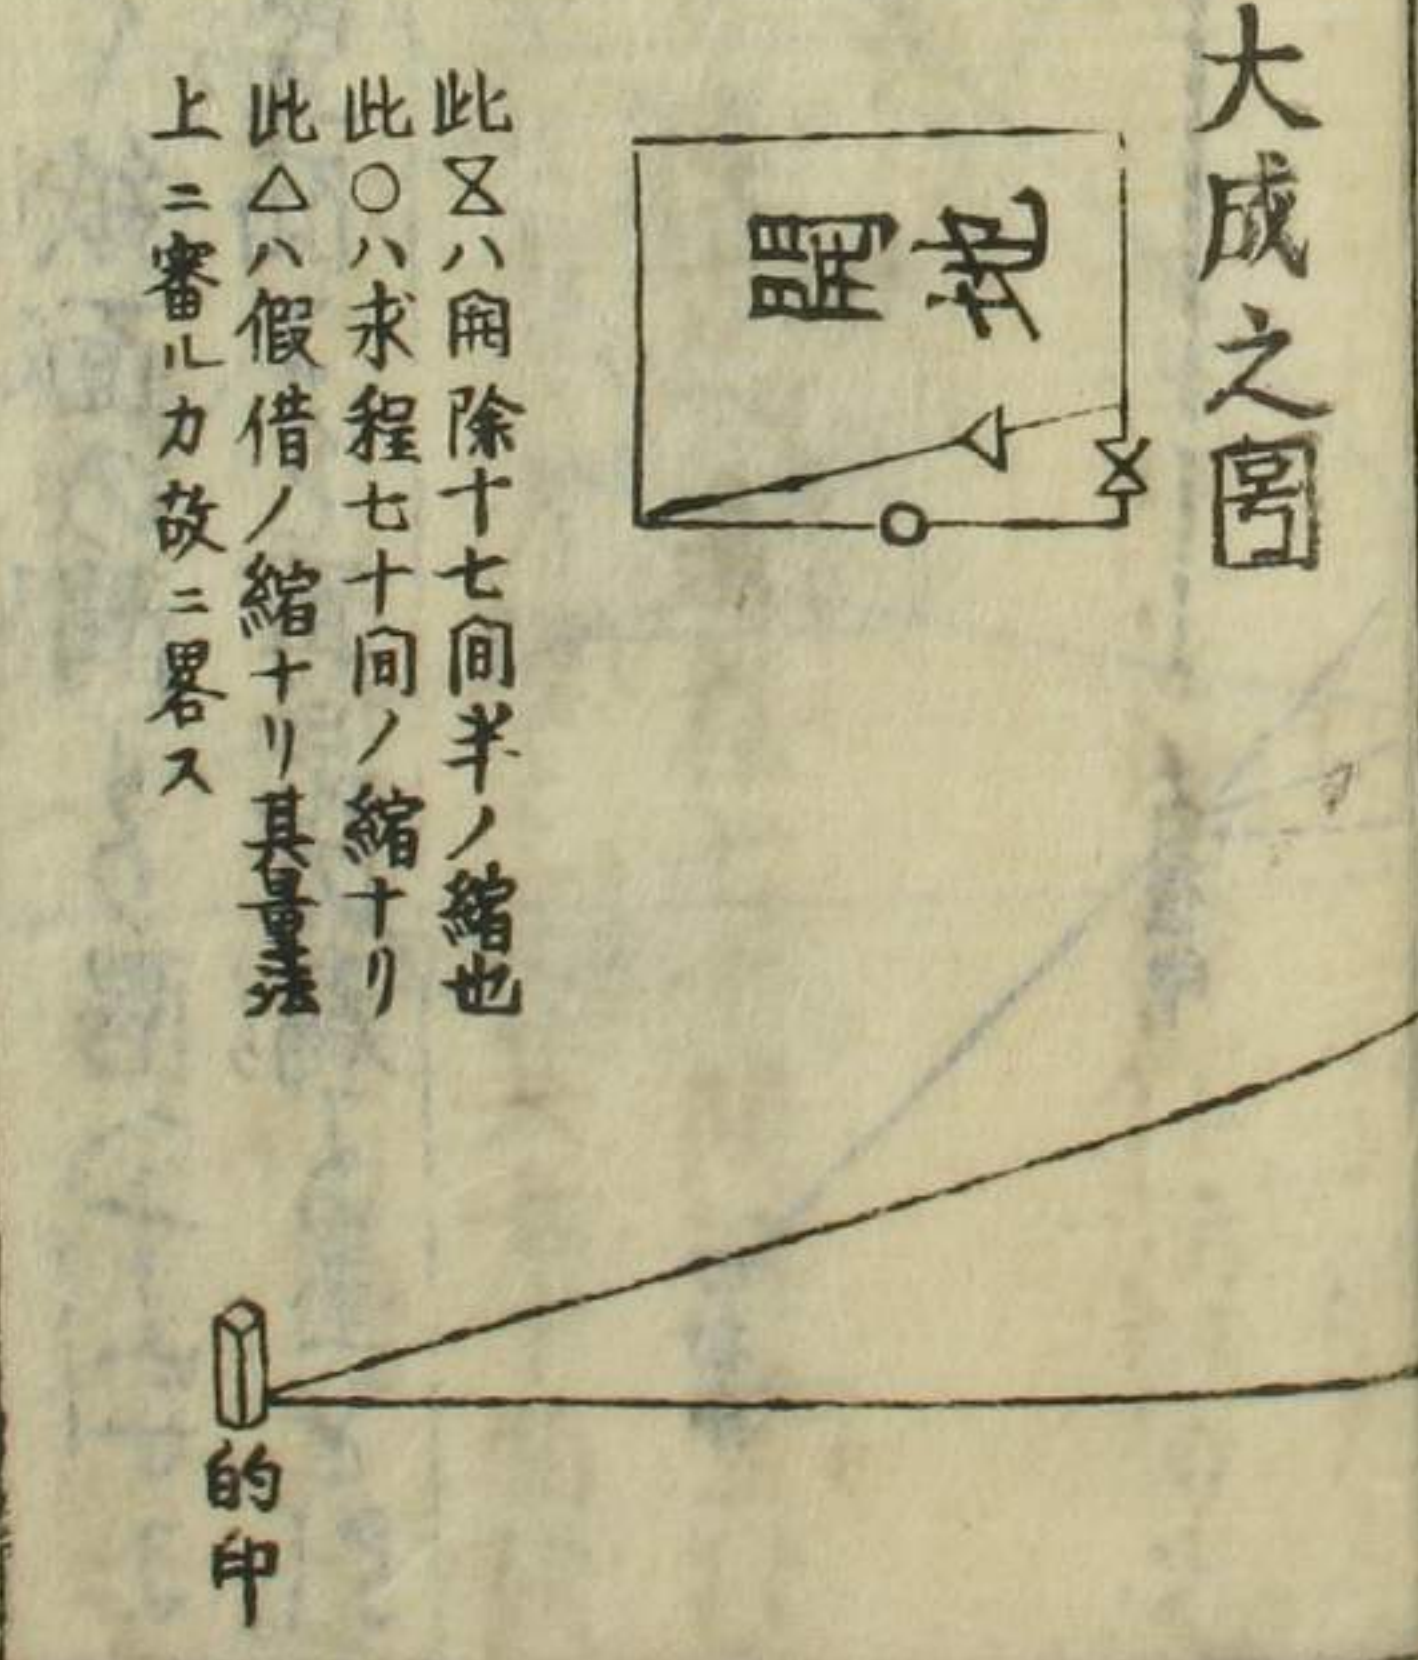 大成之圖
開地
此⧖ハ開除十七間半ノ縮也
此○ハ求程七十間ノ縮ナリ
此△ハ假借ノ縮ナリ其量法
上ニ審ルカ故ニ畧ス
的印